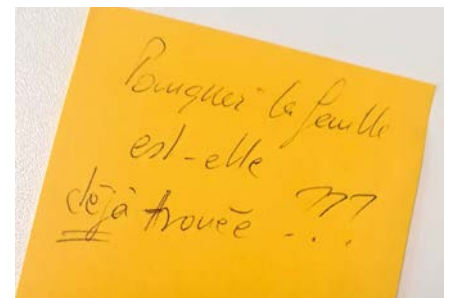 Pourquoi la feuille
est-elle
déjà trouée ???